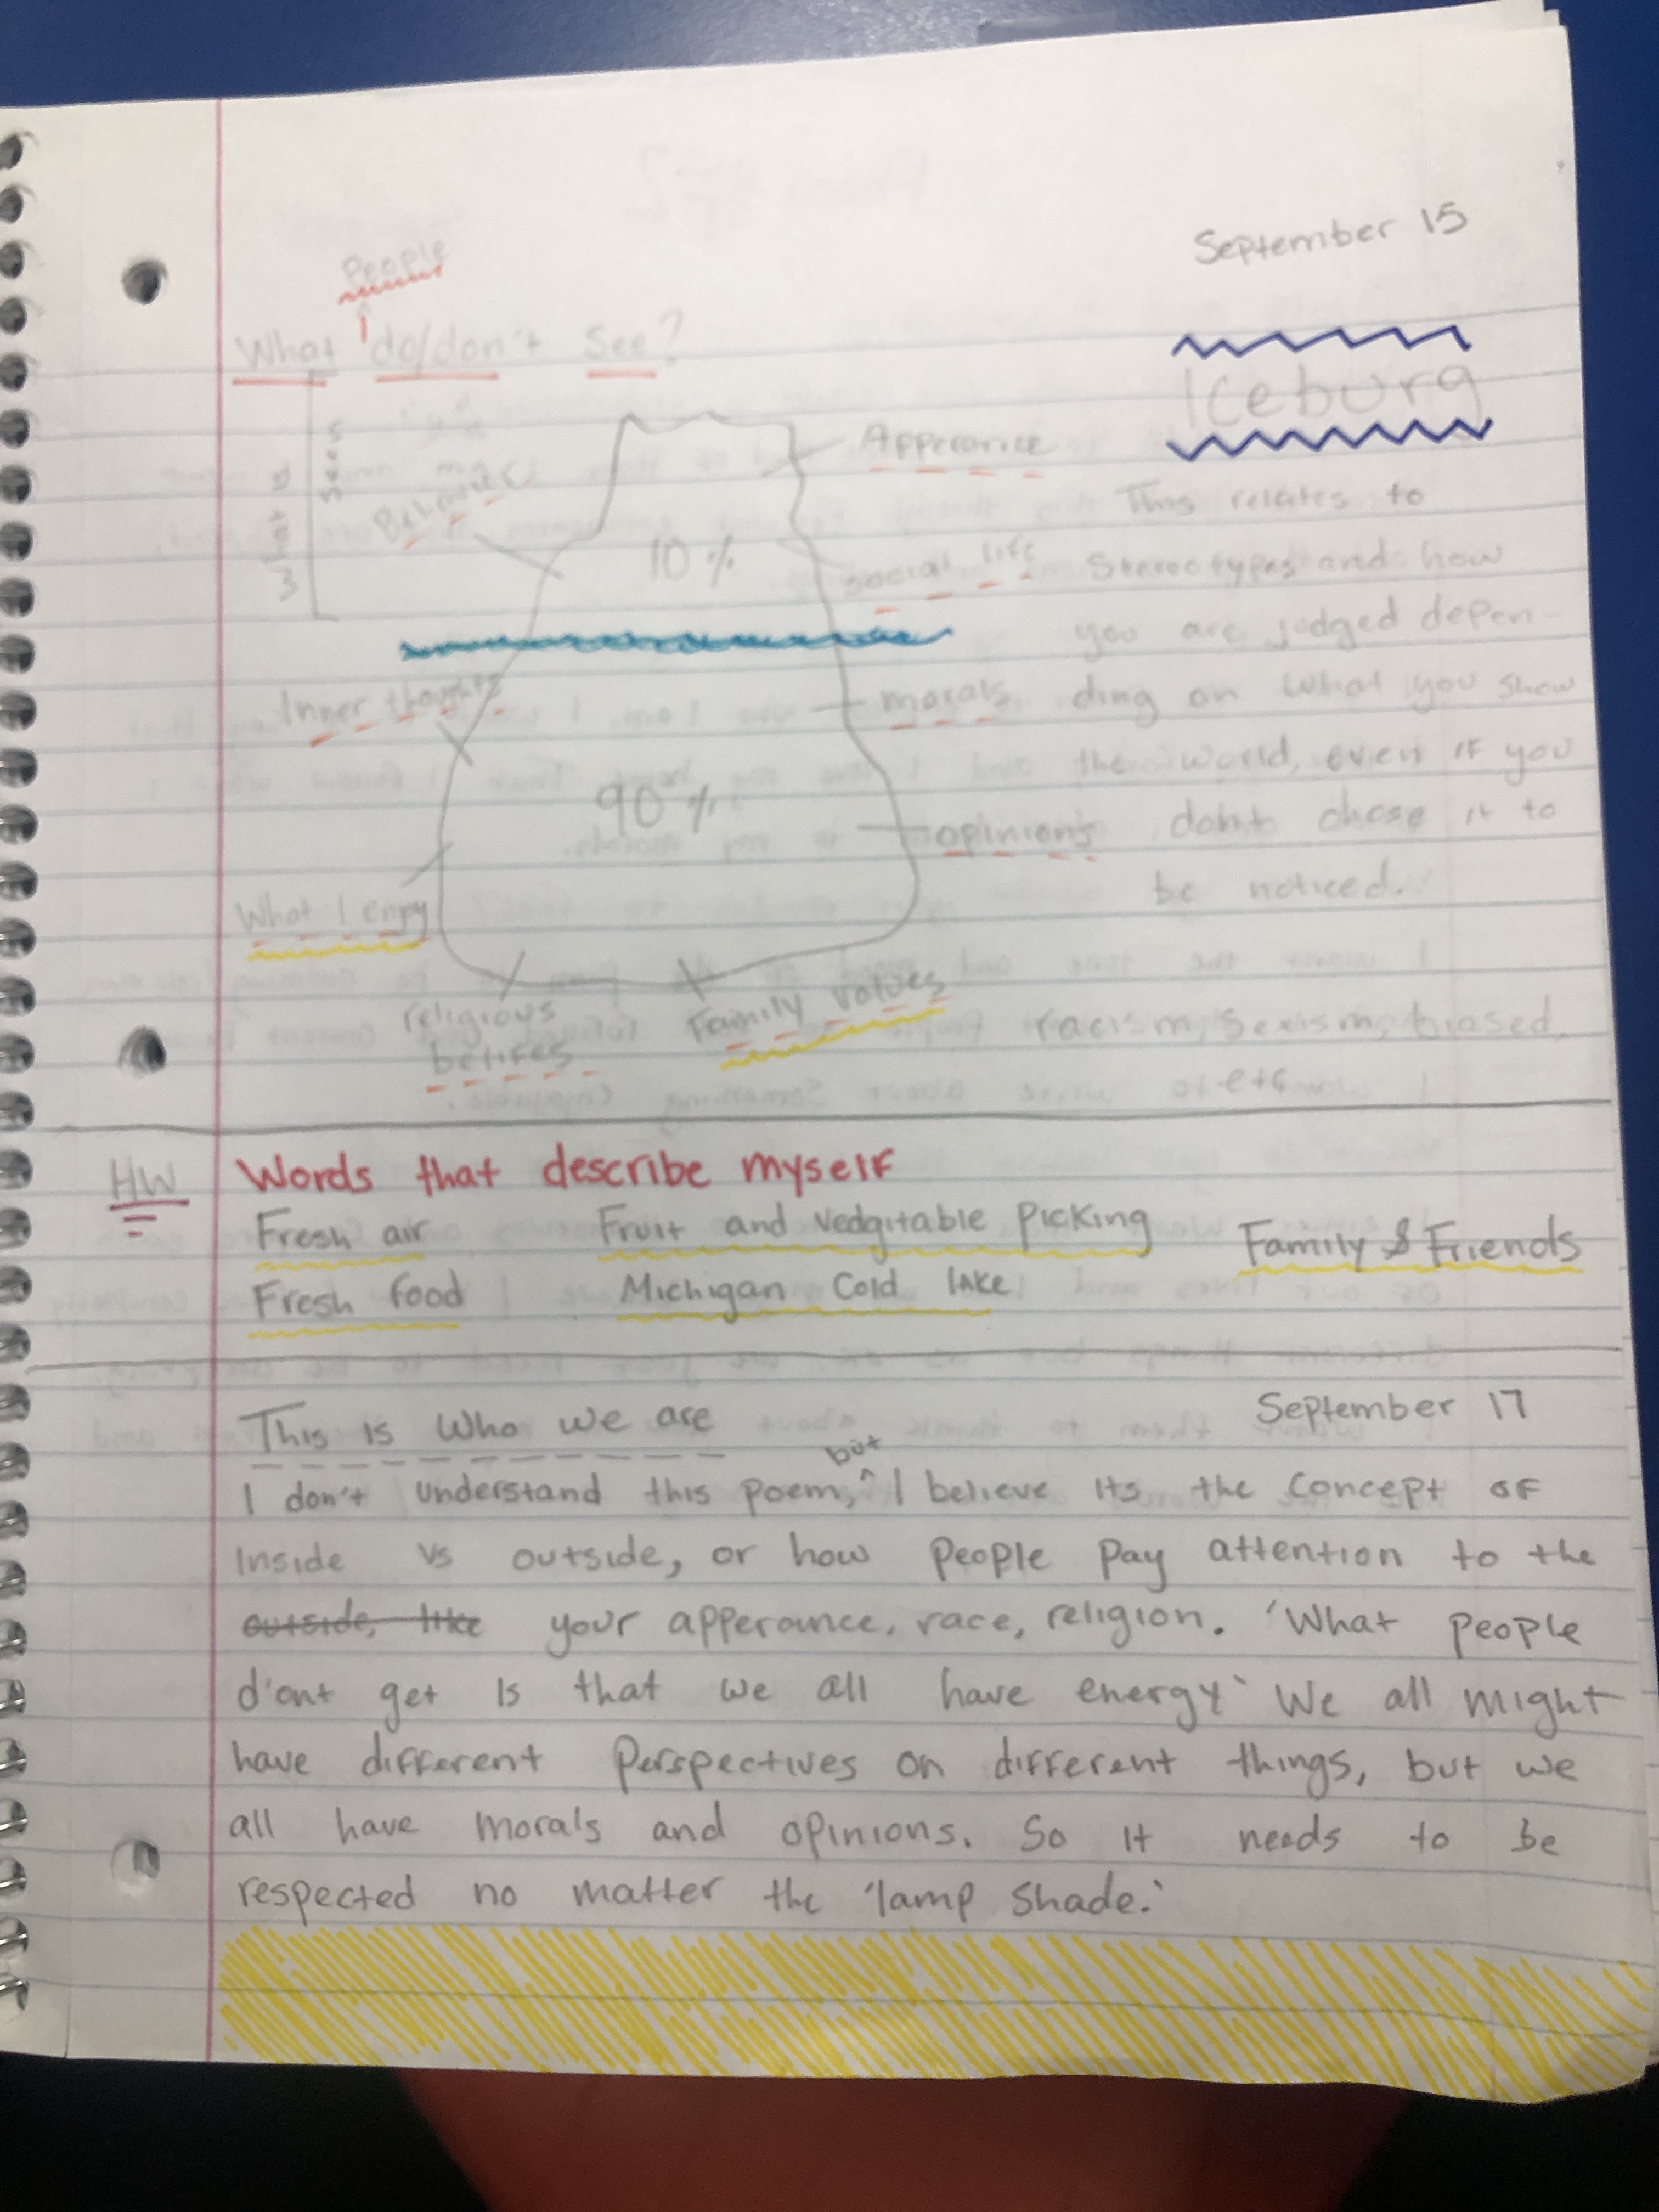 September 15
People
What do/don't See?
Iceburg
Apperance
10 %
social life
Inner thoughts
morals
90 %
opinions
What I enjoy
religious
belifes
Family values
This relates to
Stereotypes and how
you are judged depen-
ding on what you show
the world, even if you
don't chose it to
be noticed.
racism, sexism, biased,
etc
HW
Words that describe myself
Fresh air
Fruit and vedgitable picking
Family & Friends
Fresh food
Michigan Cold lake
This is Who we are
September 17
but
I don't understand this poem, ^ I believe its the concept of
inside vs outside, or how people pay attention to the
outside, like your apperance, race, religion. 'What people
d'ont get is that we all have energy' We all might
have different perspectives on different things, but we
all have morals and opinions. So it needs to be
respected no matter the 'lamp shade.'